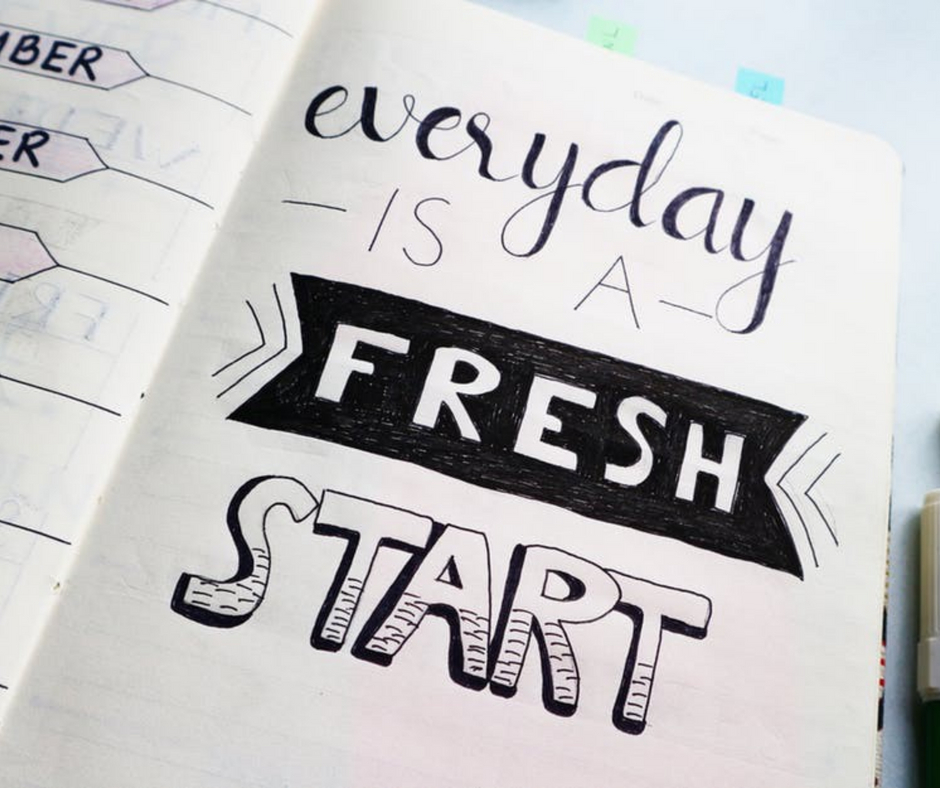 MBER
ER
everyday
IS A
FRESH
START